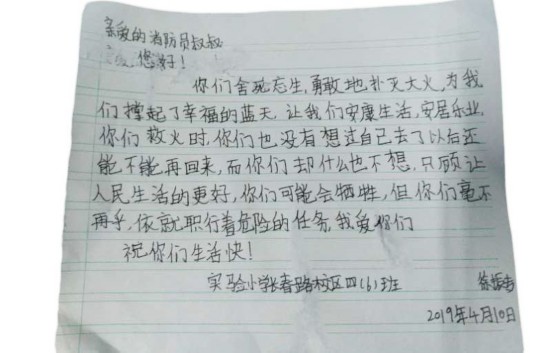 亲爱的消防员叔叔
您好!
你们舍死忘生,勇敢地扑灭大火,为我
们撑起了幸福的蓝天,让我们安康生活,安居乐业,
你们救火时,你们也没有想过自己去了以后还
能不能再回来,而你们却什么也不想,只顾让
人民生活的更好,你们可能会牺牲,但你们毫不
再乎,依就职行着危险的任务,我爱你们
祝你们生活快!
实验小学长春路校区四(6)班
2019年4月10日